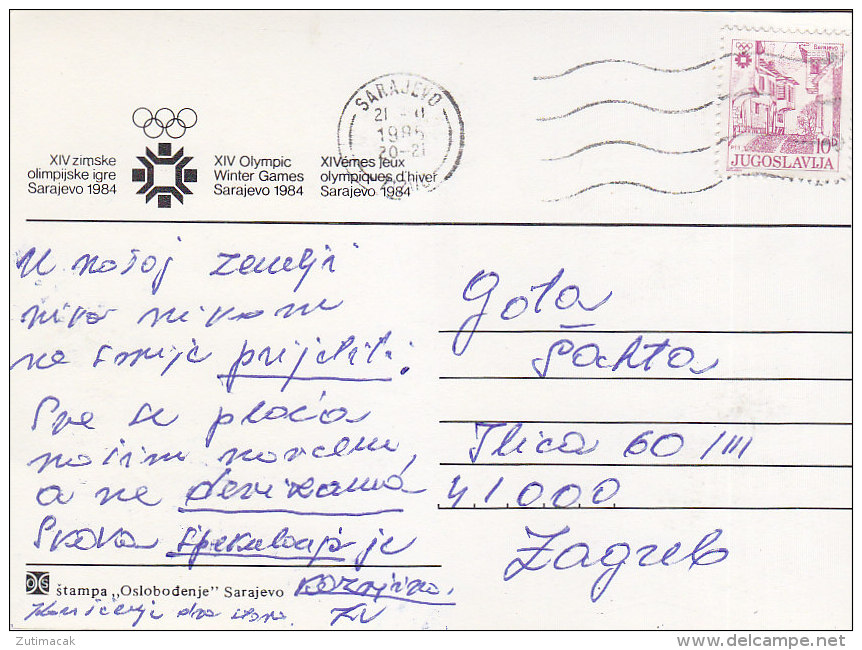 Sarajevo
10D
JUGOSLAVIJA
SARAJEVO
21
1985
20-21
XIV zimske
olimpijske igre
Sarajevo 1984
XIV Olympic
Winter Games
Sarajevo 1984
XIVémes jeux
olympiques d'hiver
Sarajevo 1984
U našoj zemlji
niko nikom
ne smije prijetiti.
Sve se plaća
našim novcem,
a ne devizama
Svaka špekulacija je
kaznjiva.
Gola
Šahta
Ilica 60/III
41000
Zagreb
OS štampa „Oslobođenje” Sarajevo
Zutimacak
delcampe.net